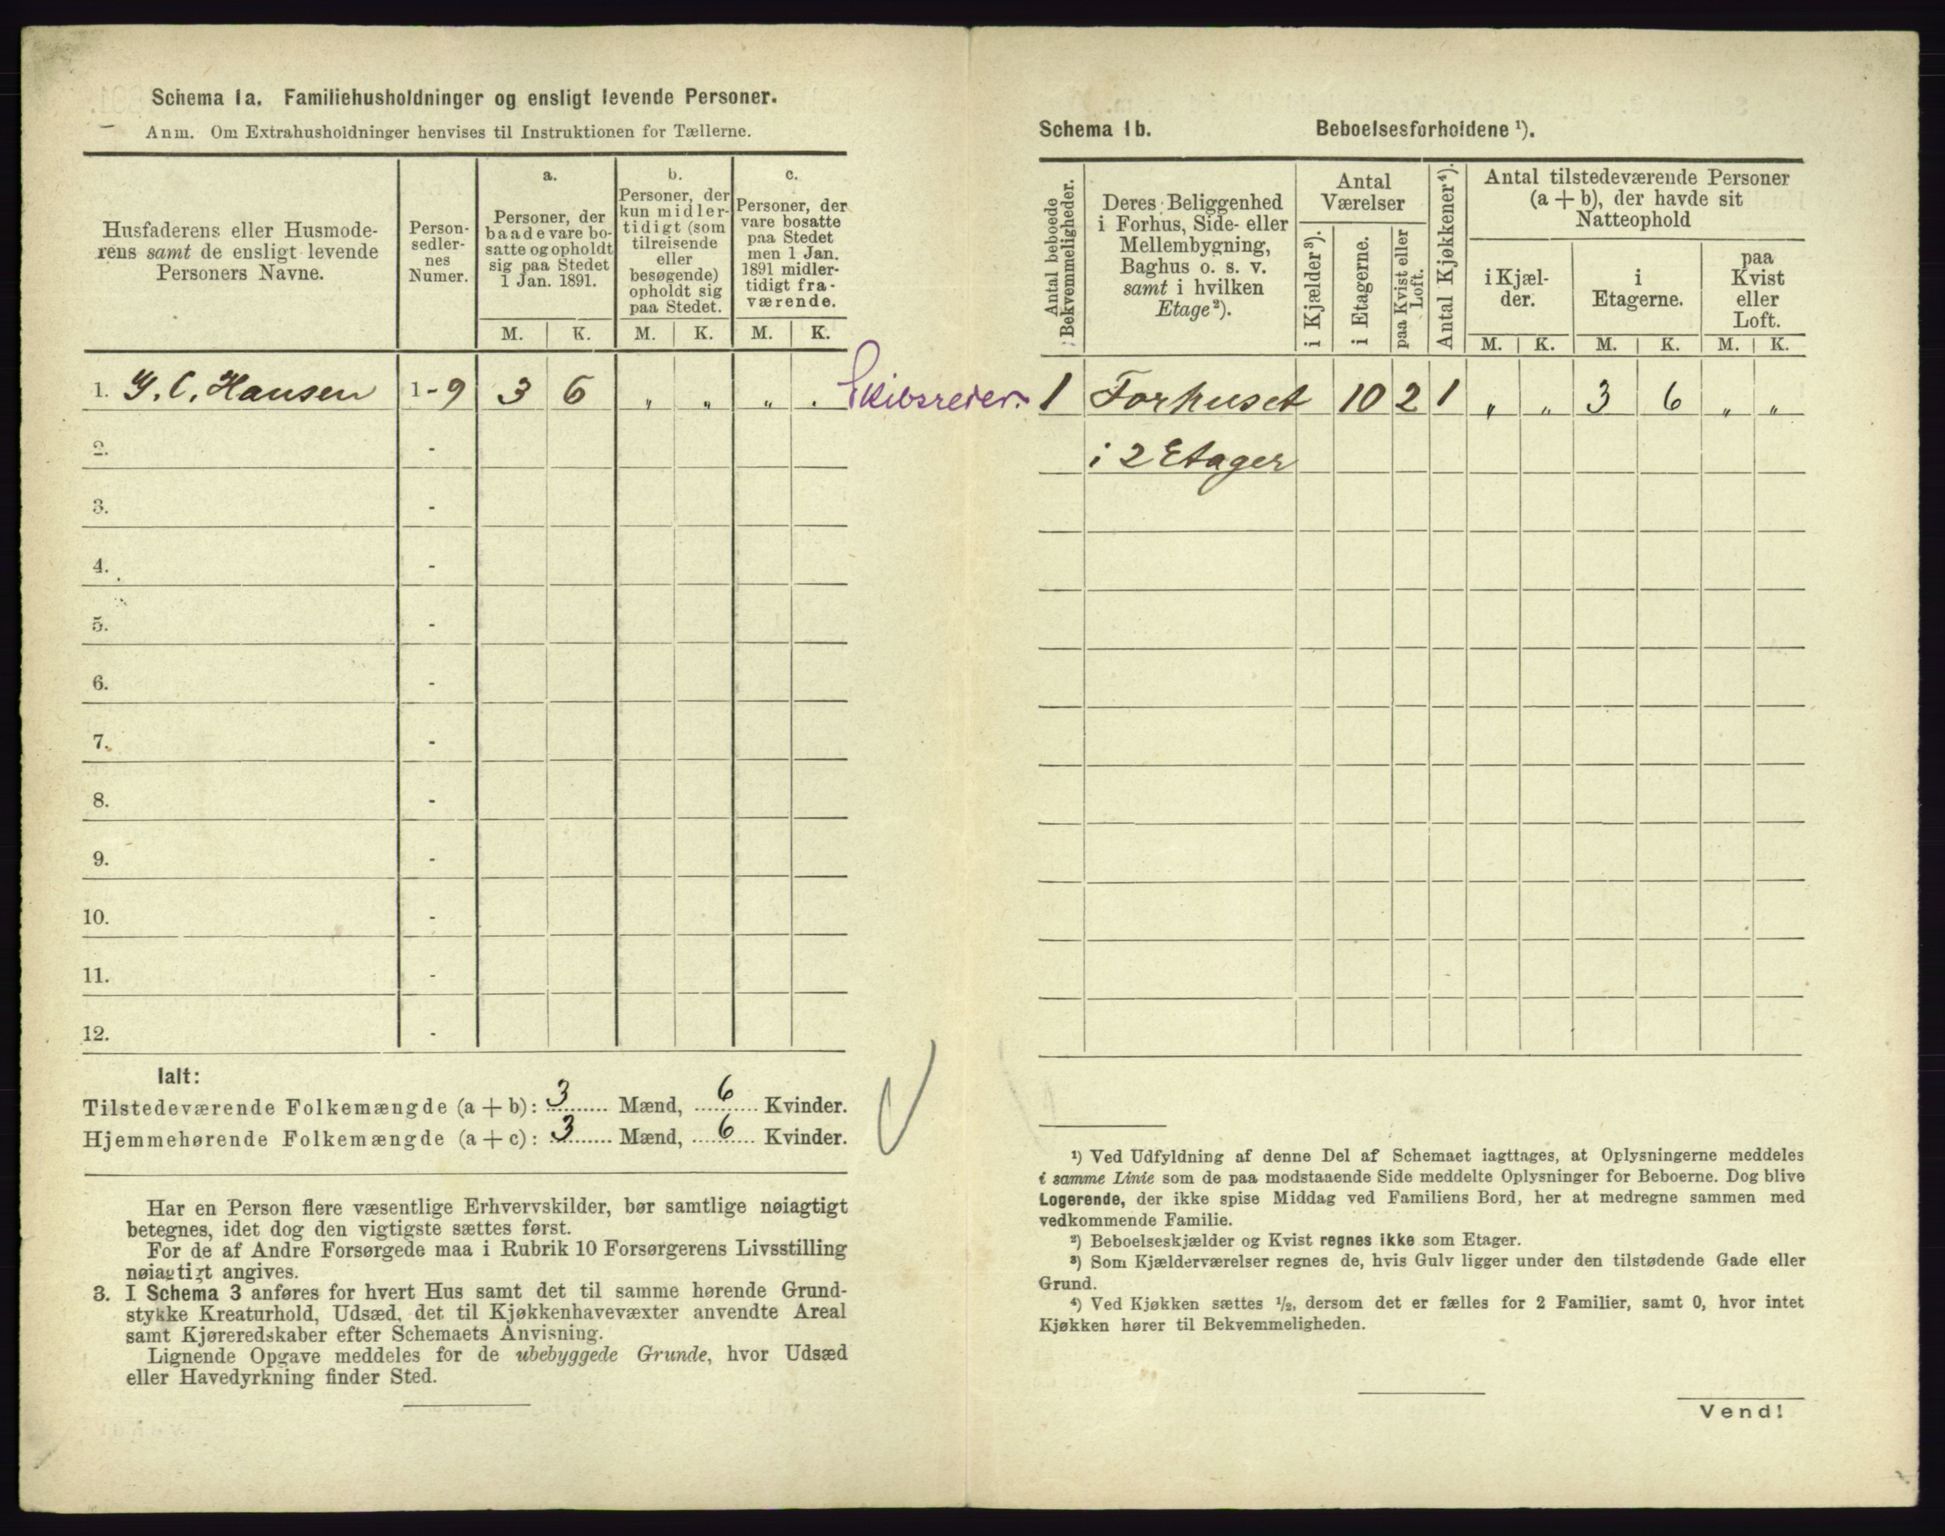 Schema 1a. Familiehusholdninger og ensligt levende Personer.
Anm. Om Extrahusholdninger henvises til Instruktionen for Tællerne.
Husfaderens eller Husmoderens samt de ensligt levende Personers Navne.
Person-sedler-nes Numer.
a.
Personer, der baade vare bosatte og opholdt sig paa Stedet 1 Jan. 1891.
b.
Personer, der kun midlertidigt (som tilreisende eller besøgende) opholdt sig paa Stedet.
c.
Personer, der vare bosatte paa Stedet men 1 Jan. 1891 midlertidigt fraværende.
M. K. M. K. M. K.
1. G. C. Hansen 1-9 3 6 „ „ „ . Skibsreder.
2. -
3. -
4. -
5. -
6. -
7. -
8. -
9. -
10. -
11. -
12. -
Ialt:
Tilstedeværende Folkemængde (a + b): 3 Mænd, 6 Kvinder.
Hjemmehørende Folkemængde (a + c): 3 Mænd, 6 Kvinder.
Har en Person flere væsentlige Erhvervskilder, bør samtlige nøiagtigt
betegnes, idet dog den vigtigste sættes først.
For de af Andre Forsørgede maa i Rubrik 10 Forsørgerens Livsstilling
nøiagtigt angives.
3. I Schema 3 anføres for hvert Hus samt det til samme hørende Grund-
stykke Kreaturhold, Udsæd, det til Kjøkkenhavevæxter anvendte Areal
samt Kjøreredskaber efter Schemaets Anvisning.
Lignende Opgave meddeles for de ubebyggede Grunde, hvor Udsæd
eller Havedyrkning finder Sted.
Schema 1b. Beboelsesforholdene ¹).
Antal beboede Bekvemmeligheder.
Deres Beliggenhed i Forhus, Side- eller Mellembygning, Baghus o. s. v. samt i hvilken Etage²).
Antal Værelser
i Kjælder³).
i Etagerne.
paa Kvist eller Loft.
Antal Kjøkkener⁴).
Antal tilstedeværende Personer (a + b), der havde sit Natteophold
i Kjælder.
i Etagerne.
paa Kvist eller Loft.
M. K. M. K. M. K.
1 Forhuset 10 2 1 „ „ 3 6 „ „
i 2 Etager
¹) Ved Udfyldning af denne Del af Schemaet iagttages, at Oplysningerne meddeles
i samme Linie som de paa modstaaende Side meddelte Oplysninger for Beboerne. Dog blive
Logerende, der ikke spise Middag ved Familiens Bord, her at medregne sammen med
vedkommende Familie.
²) Beboelseskjælder og Kvist regnes ikke som Etager.
³) Som Kjælderværelser regnes de, hvis Gulv ligger under den tilstødende Gade eller
Grund.
⁴) Ved Kjøkken sættes ½, dersom det er fælles for 2 Familier, samt 0, hvor intet
Kjøkken hører til Bekvemmeligheden.
Vend!